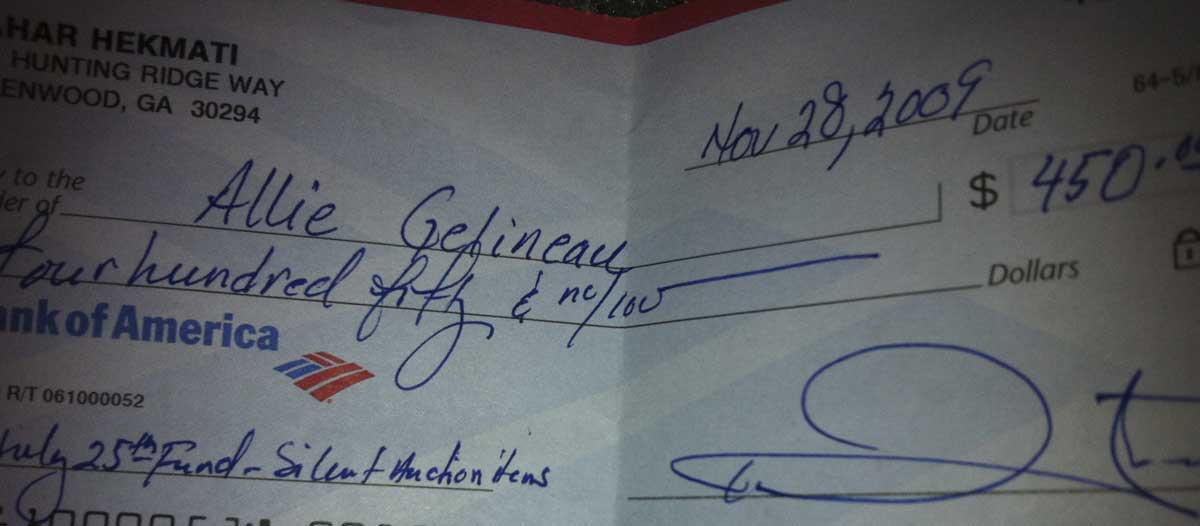 HAR HEKMATI
HUNTING RIDGE WAY
ENWOOD, GA 30294
Nov 28, 2009
Date
64-5/
to the
der of
Allie Gefineau
$ 450.00
four hundred fifty & no/100
Dollars
ank of America
R/T 061000052
July 25th Fund - Silent Auction items